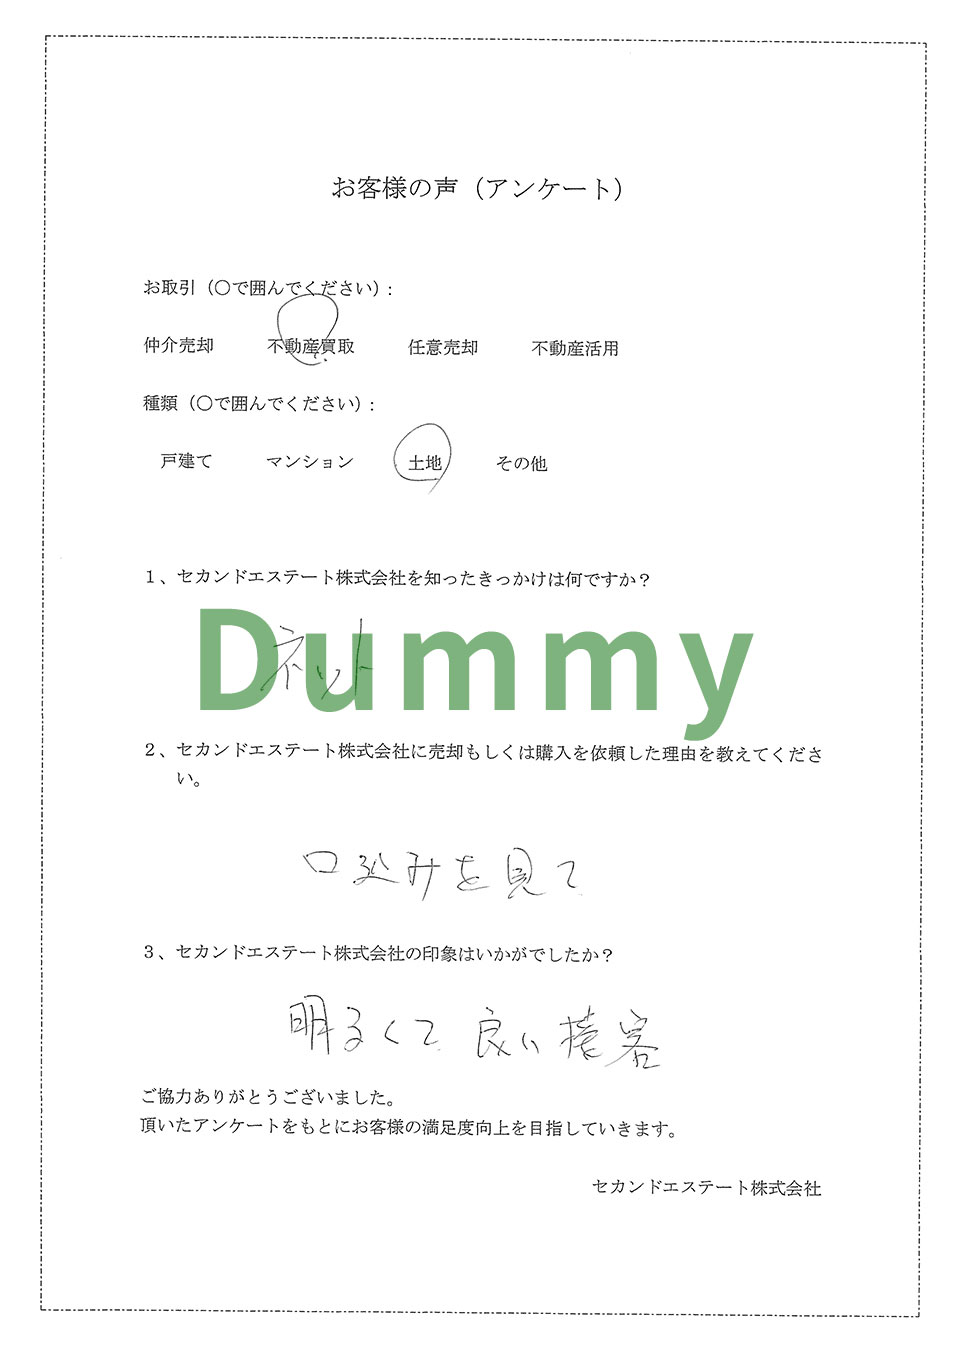 お客様の声（アンケート）
お取引（〇で囲んでください）:
仲介売却 不動産買取 任意売却 不動産活用
種類（〇で囲んでください）:
戸建て マンション 土地 その他
１、セカンドエステート株式会社を知ったきっかけは何ですか？
ネット
Dummy
２、セカンドエステート株式会社に売却もしくは購入を依頼した理由を教えてくださ
い。
口込みを見て
３、セカンドエステート株式会社の印象はいかがでしたか？
明るくて 良い接客
ご協力ありがとうございました。
頂いたアンケートをもとにお客様の満足度向上を目指していきます。
セカンドエステート株式会社